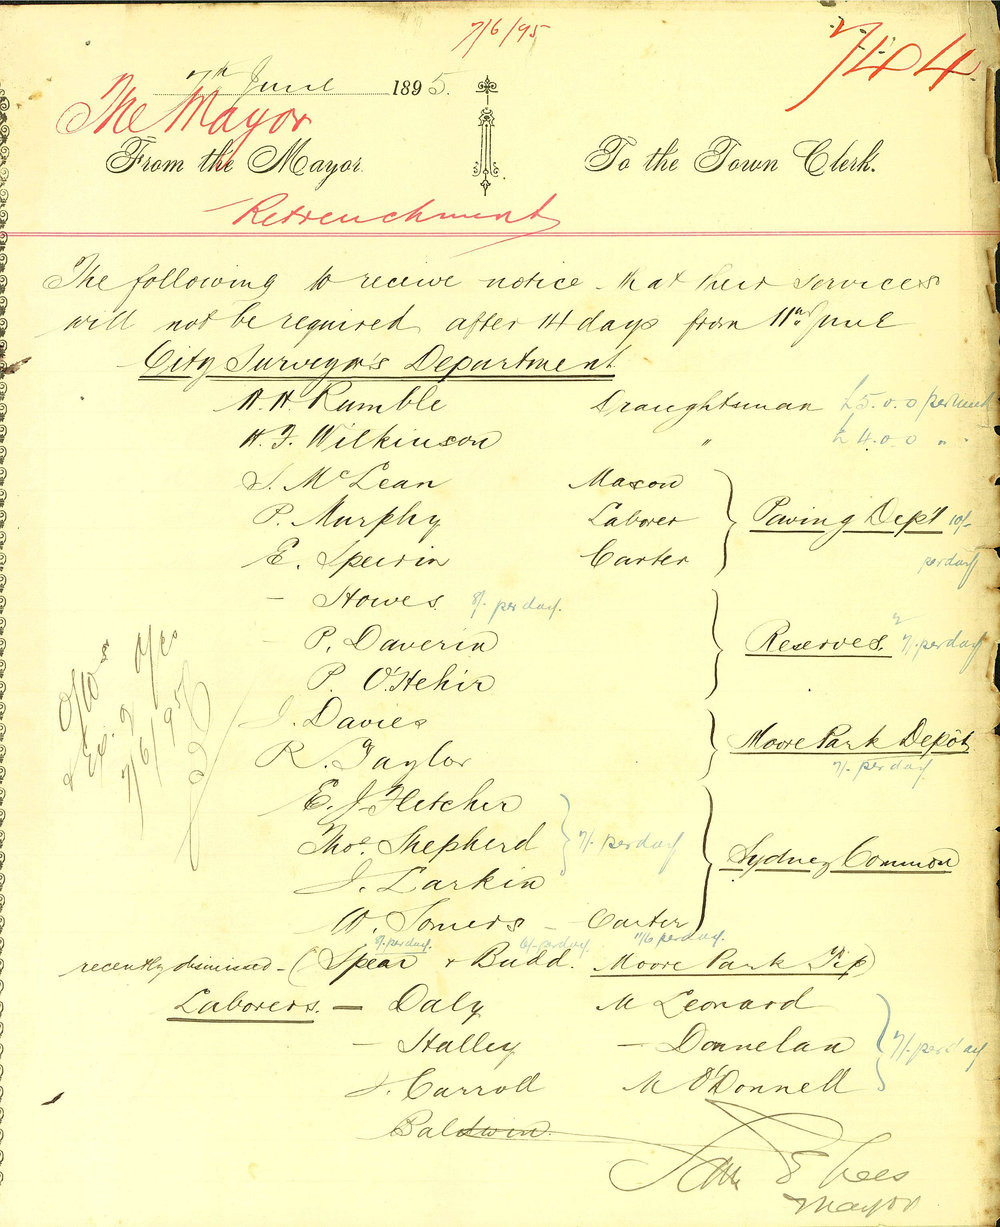 7/6/95
744
7th June 1895.
The Mayor
From the Mayor. To the Town Clerk.
Retrenchment
The following to receive notice that their services
will not be required after 14 days from 11th June
City Surveyor's Department
H. H. Rumble Draughtsman £5.0.0 per week
H. F. Wilkinson " £4.0.0 "
J. McLean Mason
P. Murphy Laborer Paving Dep't 10/-
E. Speirin Carter per day
- Howes 8/- per day.
- P. Daverin Reserves. 7/- per day
P. O'Hehir
J. Davies
R. Taylor Moore Park Depôt
7/- per day
E. J. Fletcher
Thos. Shepherd 7/- per day Sydney Common
J. Larkin
W. Somers - Carter
8/- per day. 6/- per day 11/6 per day.
recently dismissed - (Spear & Budd. Moore Park Tip)
Laborers. - Daly M Leonard
- Halley - Donnelan 7/- per day
J. Carroll M O'Donnell
Baldwin
Sam E Lees
Mayor
7/6/95